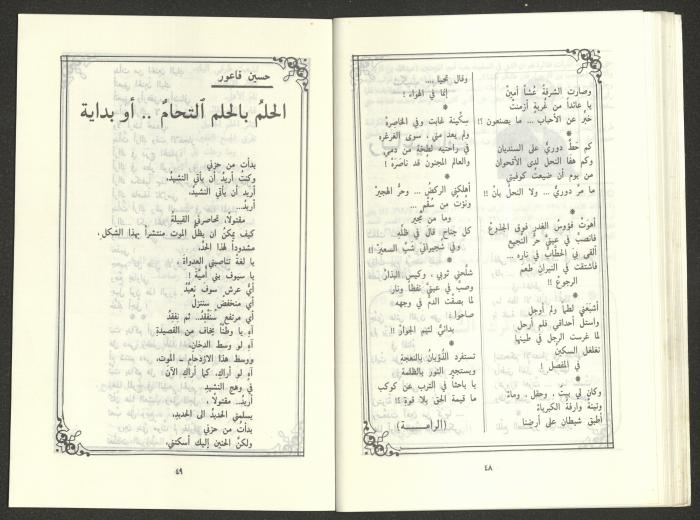 وصارت الشرفةُ عُشاً أمينْ
يا عائداً من غربةٍ أزمنتْ
خبّر عن الأحباب ... ما يصنعون ؟!
*
كم حطَّ دوريٌّ على السنديان
وكم هفا النحل لدى الأقحوان
من يوم أن ضيعتُ كوفيتي
ما مرَّ دوريٌّ ... ولا النحل بانْ !!
*
أهوَتْ فؤوسُ الغدرِ فوق الجذوعْ
فانصبَّ في عينيَّ حرُّ النجيع
ألقى بي الحطّابُ في ناره ...
فاشتقت في النيران طعم
الرجوعْ !!
*
أشبعَني لطماً ولم أوجلِ
واستلَّ أحداقي فلم أرحلِ
لما غرست الرجل في طينها
تغلغل السكينُ
في المفصلِ !
*
وكان لي بيتٌ ، وحقل ، وماءْ
وتينةٌ وارفةُ الكبرياءْ
أطبق شيطان على أرضنا
وقال نحيا ....
إنما في الهواءْ !
*
سكّينة غابت وفي الخاصِرهْ
ولم يعد مني ، سوى الغرغرهْ
في راحتيه لطخةٌ من دمي
والعالم المجنونُ قد ناصَرَهْ !
*
أهلكني الركضُ ... وحرُّ الهجيرْ
ونُؤتُ من سُقْمٍ ...
وما من مجيرْ
كل جناحٍ قال في ظلّهِ
وفي شجيراتيَ شبَّ السعيرْ !!
*
شلَّحني ثوبي ، وكيسَ البذارْ
وصبَّ في عينيَّ نفطاً ونارْ
لما بصقت الدمَّ في وجهه
صاحوا :
بدائيٌّ لئيم الجوارْ !!
*
تستفرد الذُؤبانُ بالنعجةِ
ويستجير النور بالظلمةِ
يا باحثاً في الترب عن كوكبٍ
ما قيمة الحق بلا قوة ؟!
(الرامــــة)
٤٨
حسين فاعور
الحلمُ بالحلم ٱلتحامٌ .. أو بداية
بدأت من حزني
وكنتُ أريدُ أن يأتي النشيدُ،
أريد أن يأتي النشيدُ،
أريدُ..
مقتولا، تحاصرني القبيلة
كيف يمكنُ ان يظلَّ الموت منتشراً بهذا الشكل،
مشدوداً لهذا الحدّ،
يا لغةً تناصبني العداوةَ ،
يا سيوف بني أميَّة !
أيُّ عرش سوف نَعبُدُ
أي منخفضٍ سننزلُ
أي مرتفعٍ سنَفقِدُ.. ثم نفقِدُ
آهِ يا وطَناً يخاف من القصيدةِ
آهِ لو وسط الدخان.
ووسط هذا الازدحام .. الموت،
آهِ لو أراكِ، كما أراكِ الآنَ
في وهج النشيدِ
أريدُ.. مقتولا ،
يسلمني الحديدُ الى الحديدِ،
بدأت من حزني
ولكنَّ الحنين إليك أسكتني،
٤٩